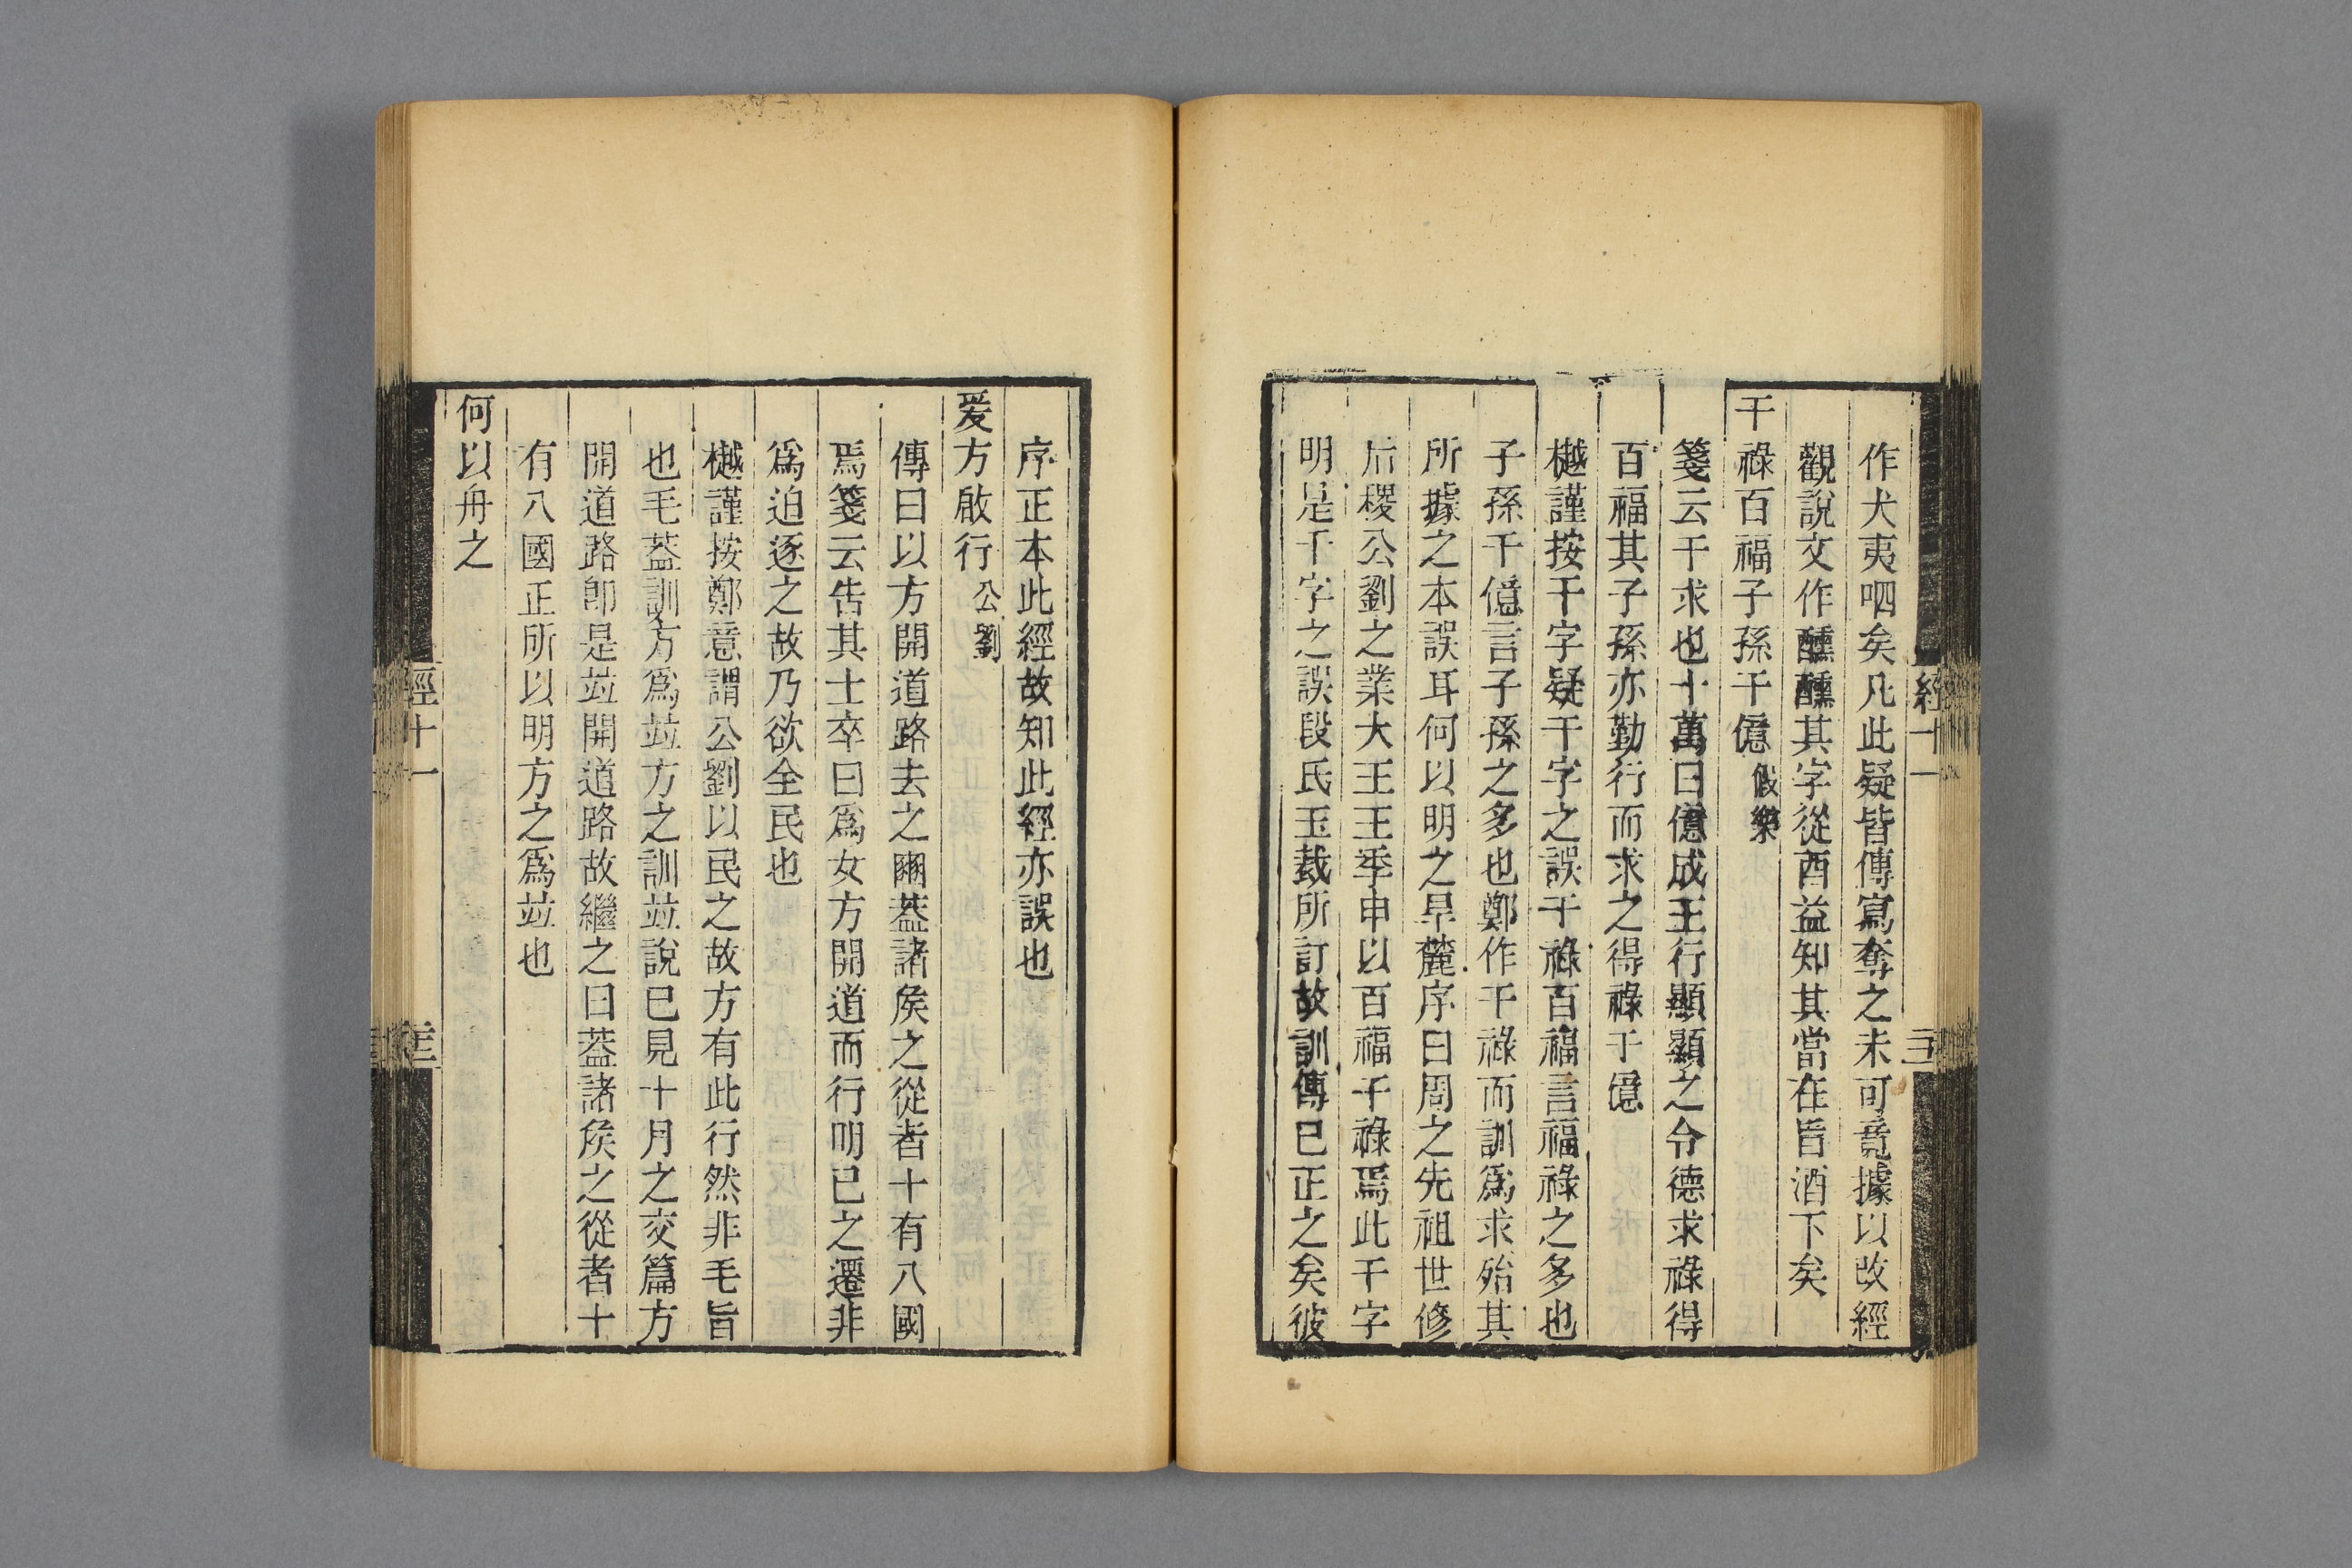 作犬夷呬矣凡此疑皆傳寫奪之未可竟據以改經
觀說文作醺醺其字從酉益知其當在旨酒下矣
干祿百福子孫千億假樂
箋云干求也十萬曰億成王行顯顯之令德求祿得
百福其子孫亦勤行而求之得祿千億
樾謹按干字疑千字之誤千祿百福言福祿之多也
子孫千億言子孫之多也鄭作干祿而訓爲求殆其
所據之本誤耳何以明之旱麓序曰周之先祖世修
后稷公劉之業大王王季申以百福千祿焉此千字
明是千字之誤段氏玉裁所訂故訓傳已正之矣彼
經十一
序正本此經故知此經亦誤也
爰方啟行公劉
傳曰以方開道路去之豳葢諸矦之從者十有八國
焉箋云告其士卒曰爲女方開道而行明已之遷非
爲迫逐之故乃欲全民也
樾謹按鄭意謂公劉以民之故方有此行然非毛旨
也毛葢訓方爲竝方之訓竝說已見十月之交篇方
開道路卽是竝開道路故繼之曰葢諸矦之從者十
有八國正所以明方之爲竝也
何以舟之
經十一